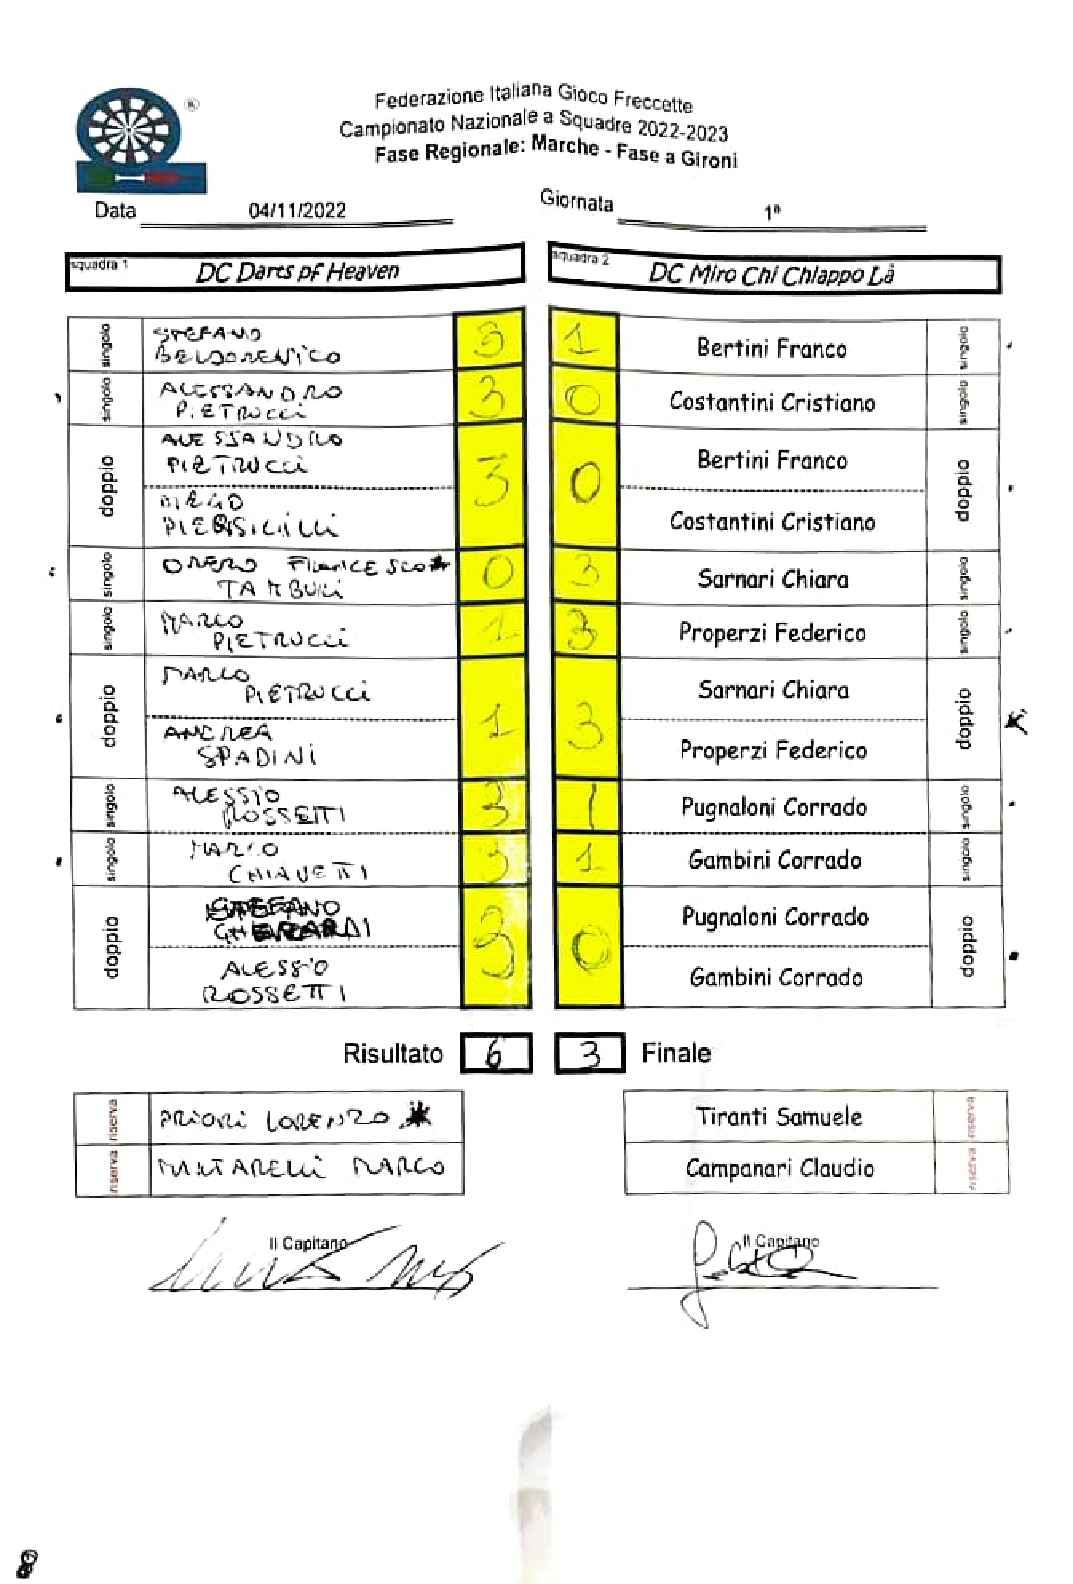 Federazione Italiana Gioco Freccette
Campionato Nazionale a Squadre 2022-2023
Fase Regionale: Marche - Fase a Gironi
®
Data 04/11/2022 Giornata 1ª
squadra 1 DC Darts pf Heaven squadra 2 DC Miro Chi Chiappo Là
singolo STEFANO 3 1 Bertini Franco singolo
BELDOMENICO
singolo ALESSANDRO 3 0 Costantini Cristiano singolo
PIETRUCCI
doppio ALESSANDRO 3 0 Bertini Franco doppio
PIETRUCCI
DIEGO Costantini Cristiano
PIERSIGILLI
singolo OMERO FRANCESCO* 0 3 Sarnari Chiara singolo
TAMBURI
singolo MARCO 1 3 Properzi Federico singolo
PIETRUCCI
doppio MARCO 1 3 Sarnari Chiara doppio
PIETRUCCI
ANDREA Properzi Federico
SPADINI
singolo ALESSIO 3 1 Pugnaloni Corrado singolo
ROSSETTI
singolo MARCO 3 1 Gambini Corrado singolo
CHIAVETTI
doppio STEFANO 3 0 Pugnaloni Corrado doppio
GHERARDI
ALESSIO Gambini Corrado
ROSSETTI
Risultato 6 3 Finale
riserva PRIORI LORENZO * Tiranti Samuele riserva
riserva MATARELLI MARCO Campanari Claudio riserva
Il Capitano Il Capitano
8